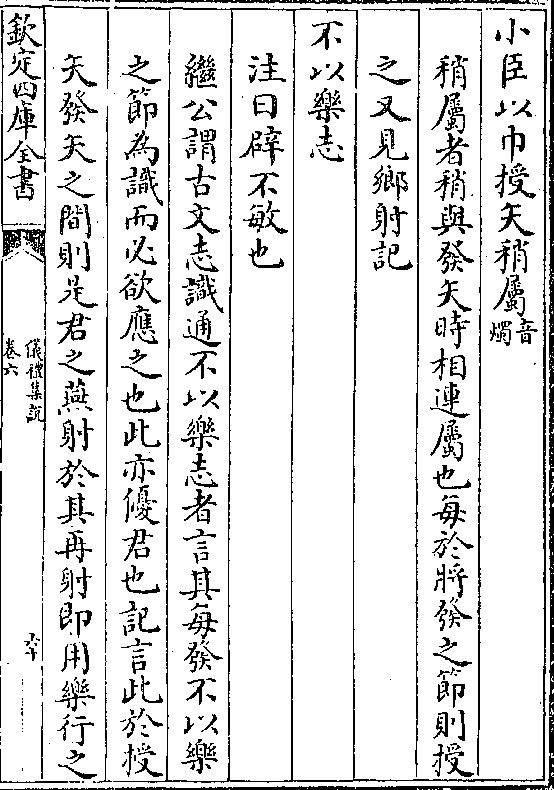 小臣以巾授矢稍屬音燭
稍屬者稍與發矢時相連屬也每於將發之節則授
之又見鄉射記
不以樂志
注曰辟不敏也
繼公謂古文志識通不以樂志者言其每發不以樂
之節為識而必欲應之也此亦優君也記言此於授
矢發矢之間則是君之燕射於其再射即用樂行之
欽定四庫全書
儀禮集說
卷六
六十